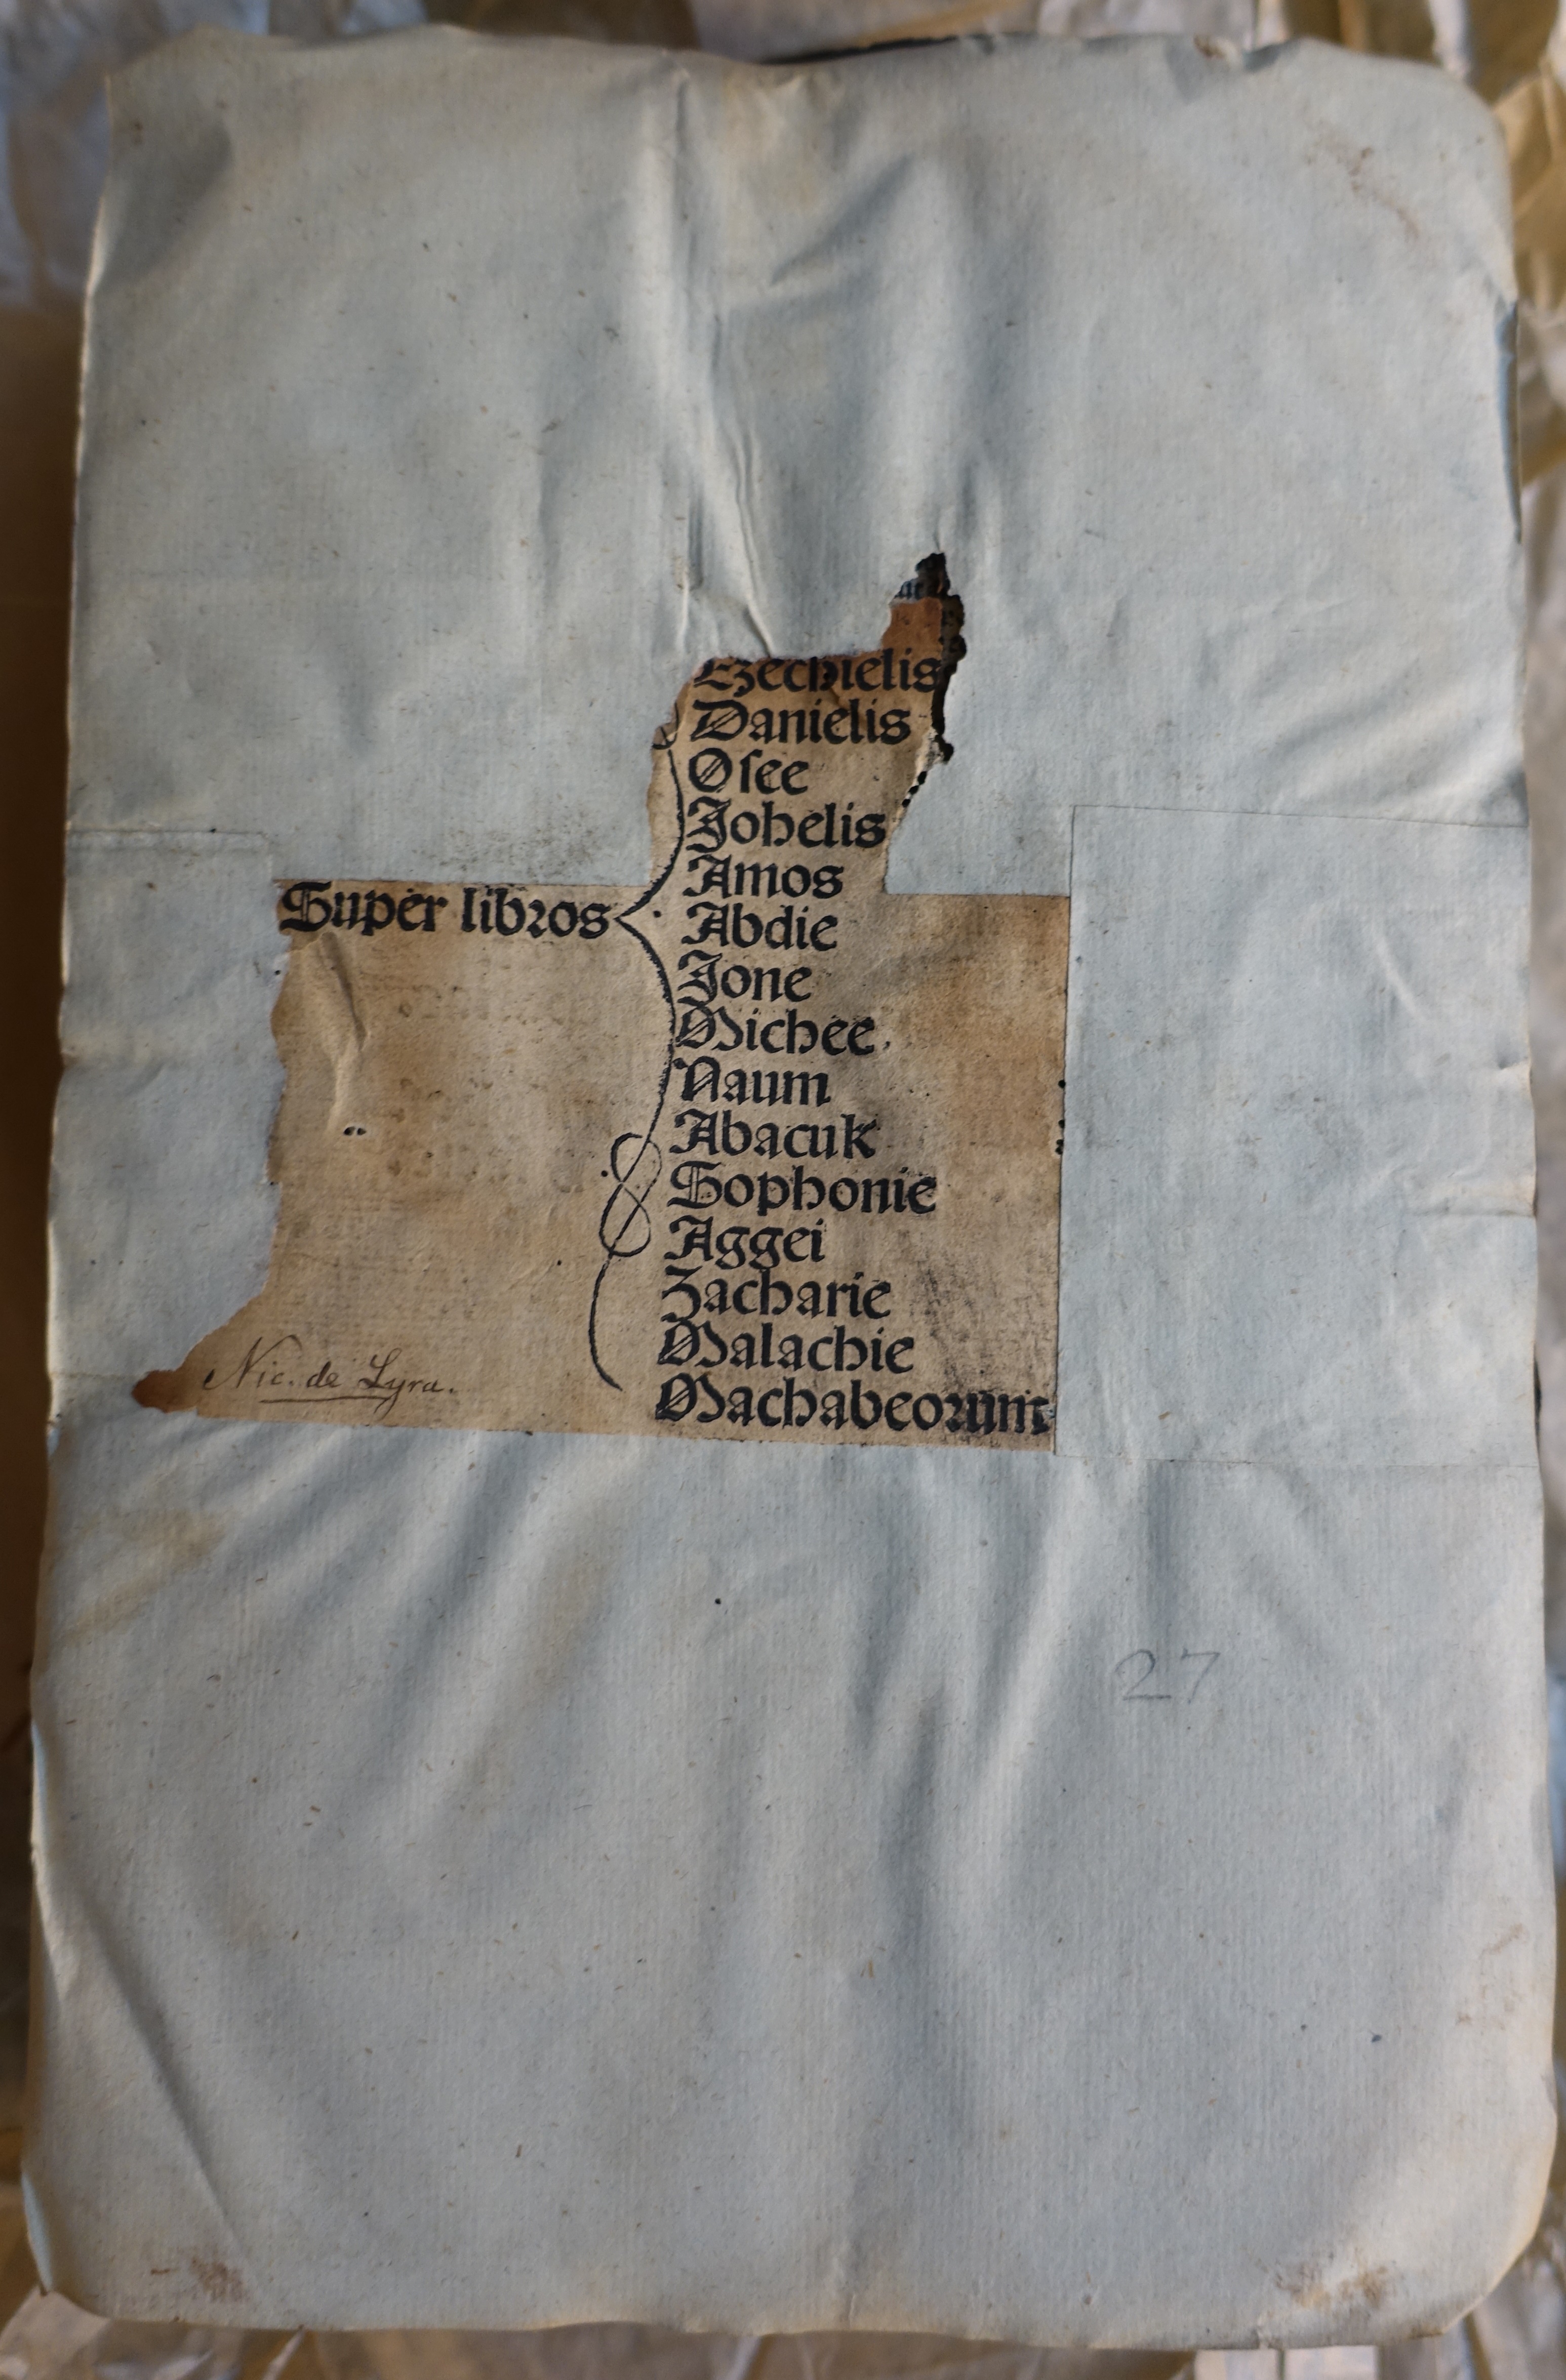 Ezechielis
Danielis
Osee
Johelis
Amos
Super libros
Abdie
Jone
Michee
Naum
Abacuk
Sophonie
Aggei
Zacharie
Malachie
Nic. de Lyra.
Machabeorum
27